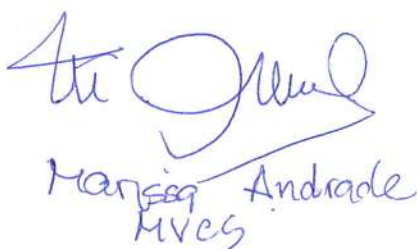 Marissa Andrade
MVCS